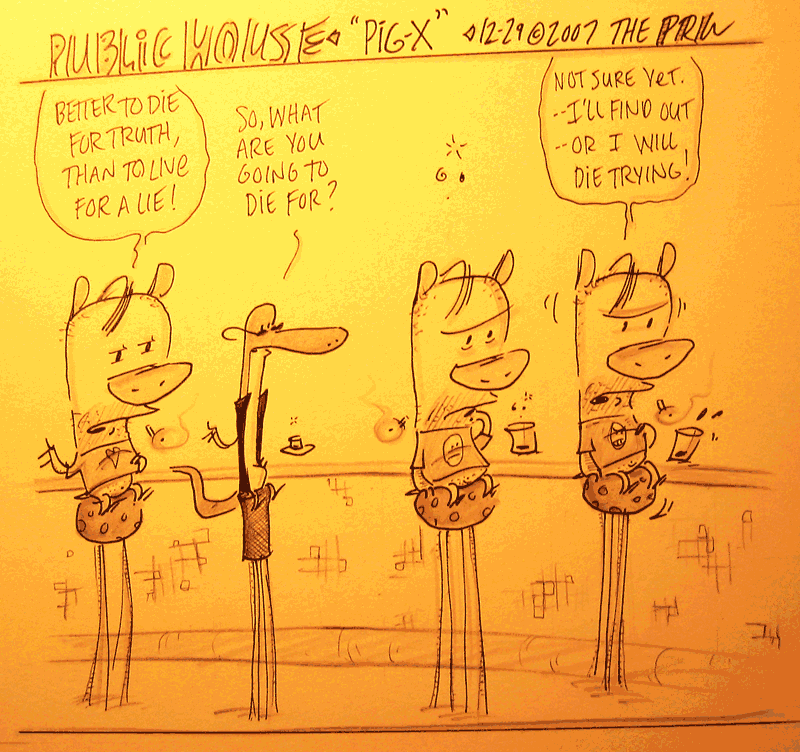 PUBLIC HOUSE "PiG-X" 12-29©2007 THE PRIN
BETTER TO DIE
FOR TRUTH,
THAN TO LIVE
FOR A LIE!
SO, WHAT
ARE YOU
GOING TO
DIE FOR?
NOT SURE YET.
--I'LL FIND OUT
--OR I WILL
DIE TRYING!